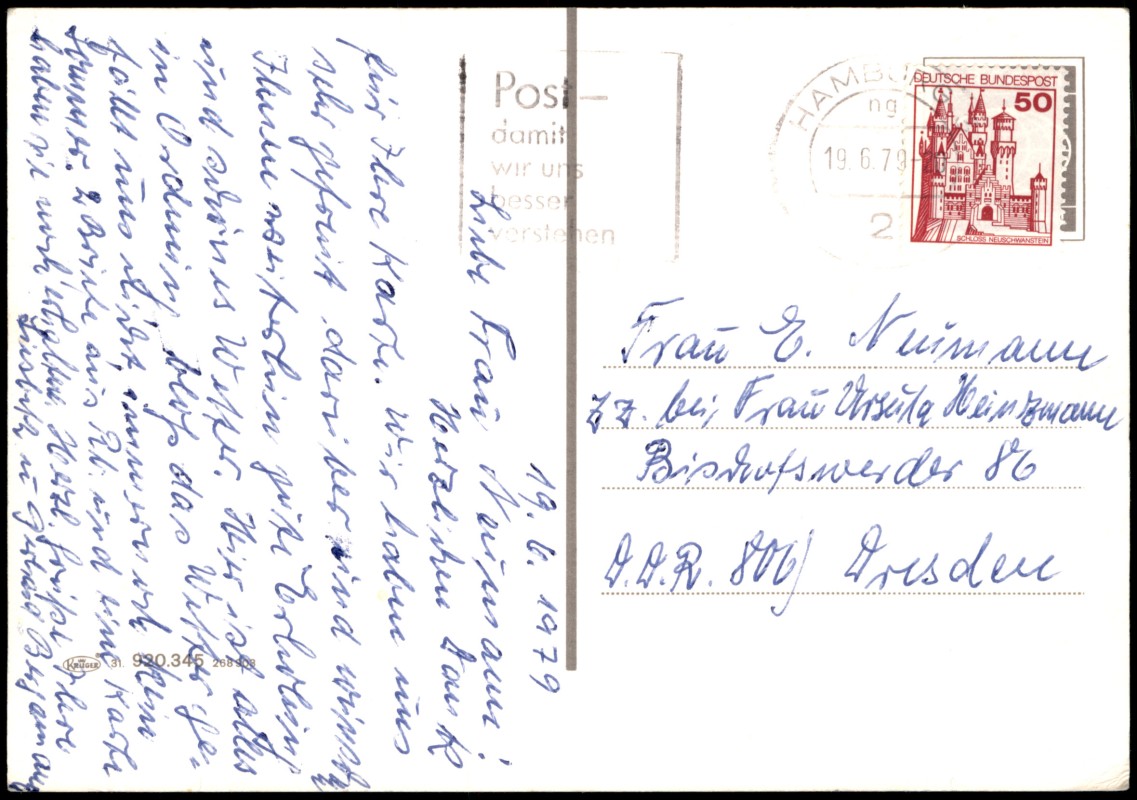 19.6.1979
Liebe Frau Neumann!
Herzlichen Dank
für Ihre Karte. Wir haben uns
sehr gefreut darüber und
Ihnen weiterhin gute Erholung
und schönes Wetter. Hier ist alles
in Ordnung, bloß das Wetter ge-
fällt uns nicht, immer noch kein
Sommer. 2 Briefe aus und eine Karte
haben wir noch erhalten. Herzl. Grüße Ihre
u.
Post –
damit
wir uns
besser
verstehen
HAMBURG
ng
19.6.79
2
DEUTSCHE BUNDESPOST
50
SCHLOSS NEUSCHWANSTEIN
Frau E. Neumann
z Z. bei Frau Ursula Heintzmann
Bischofswerder 86
D.D.R. 806 Dresden
KRÜGER 31. 920.345 268